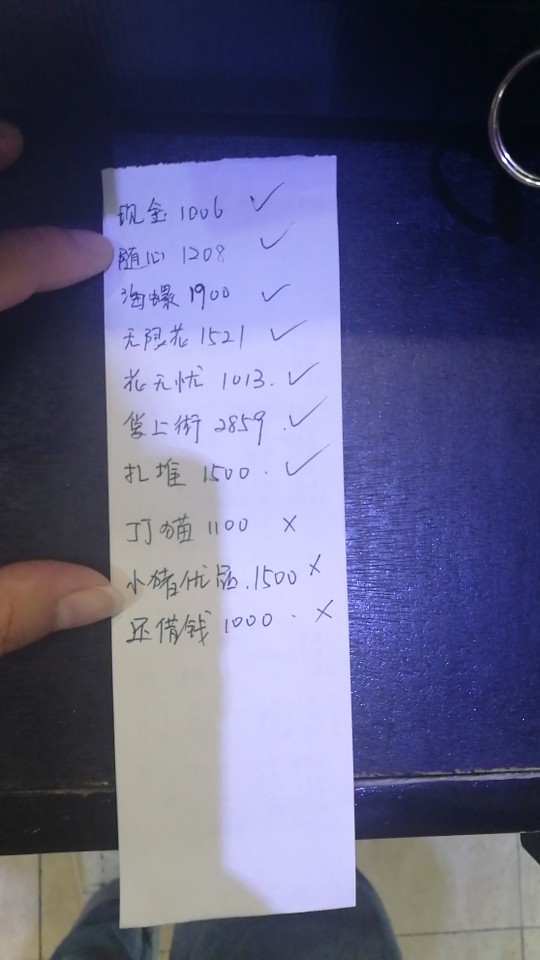 现金 1006 ✓
随心 1208 ✓
海螺 1900 ✓
无限花 1521 ✓
花无忧 1013. ✓
掌上街 2859. ✓
扎堆 1500. ✓
叮猫 1100 ×
小猪优品.1500 ×
还借钱 1000. ×